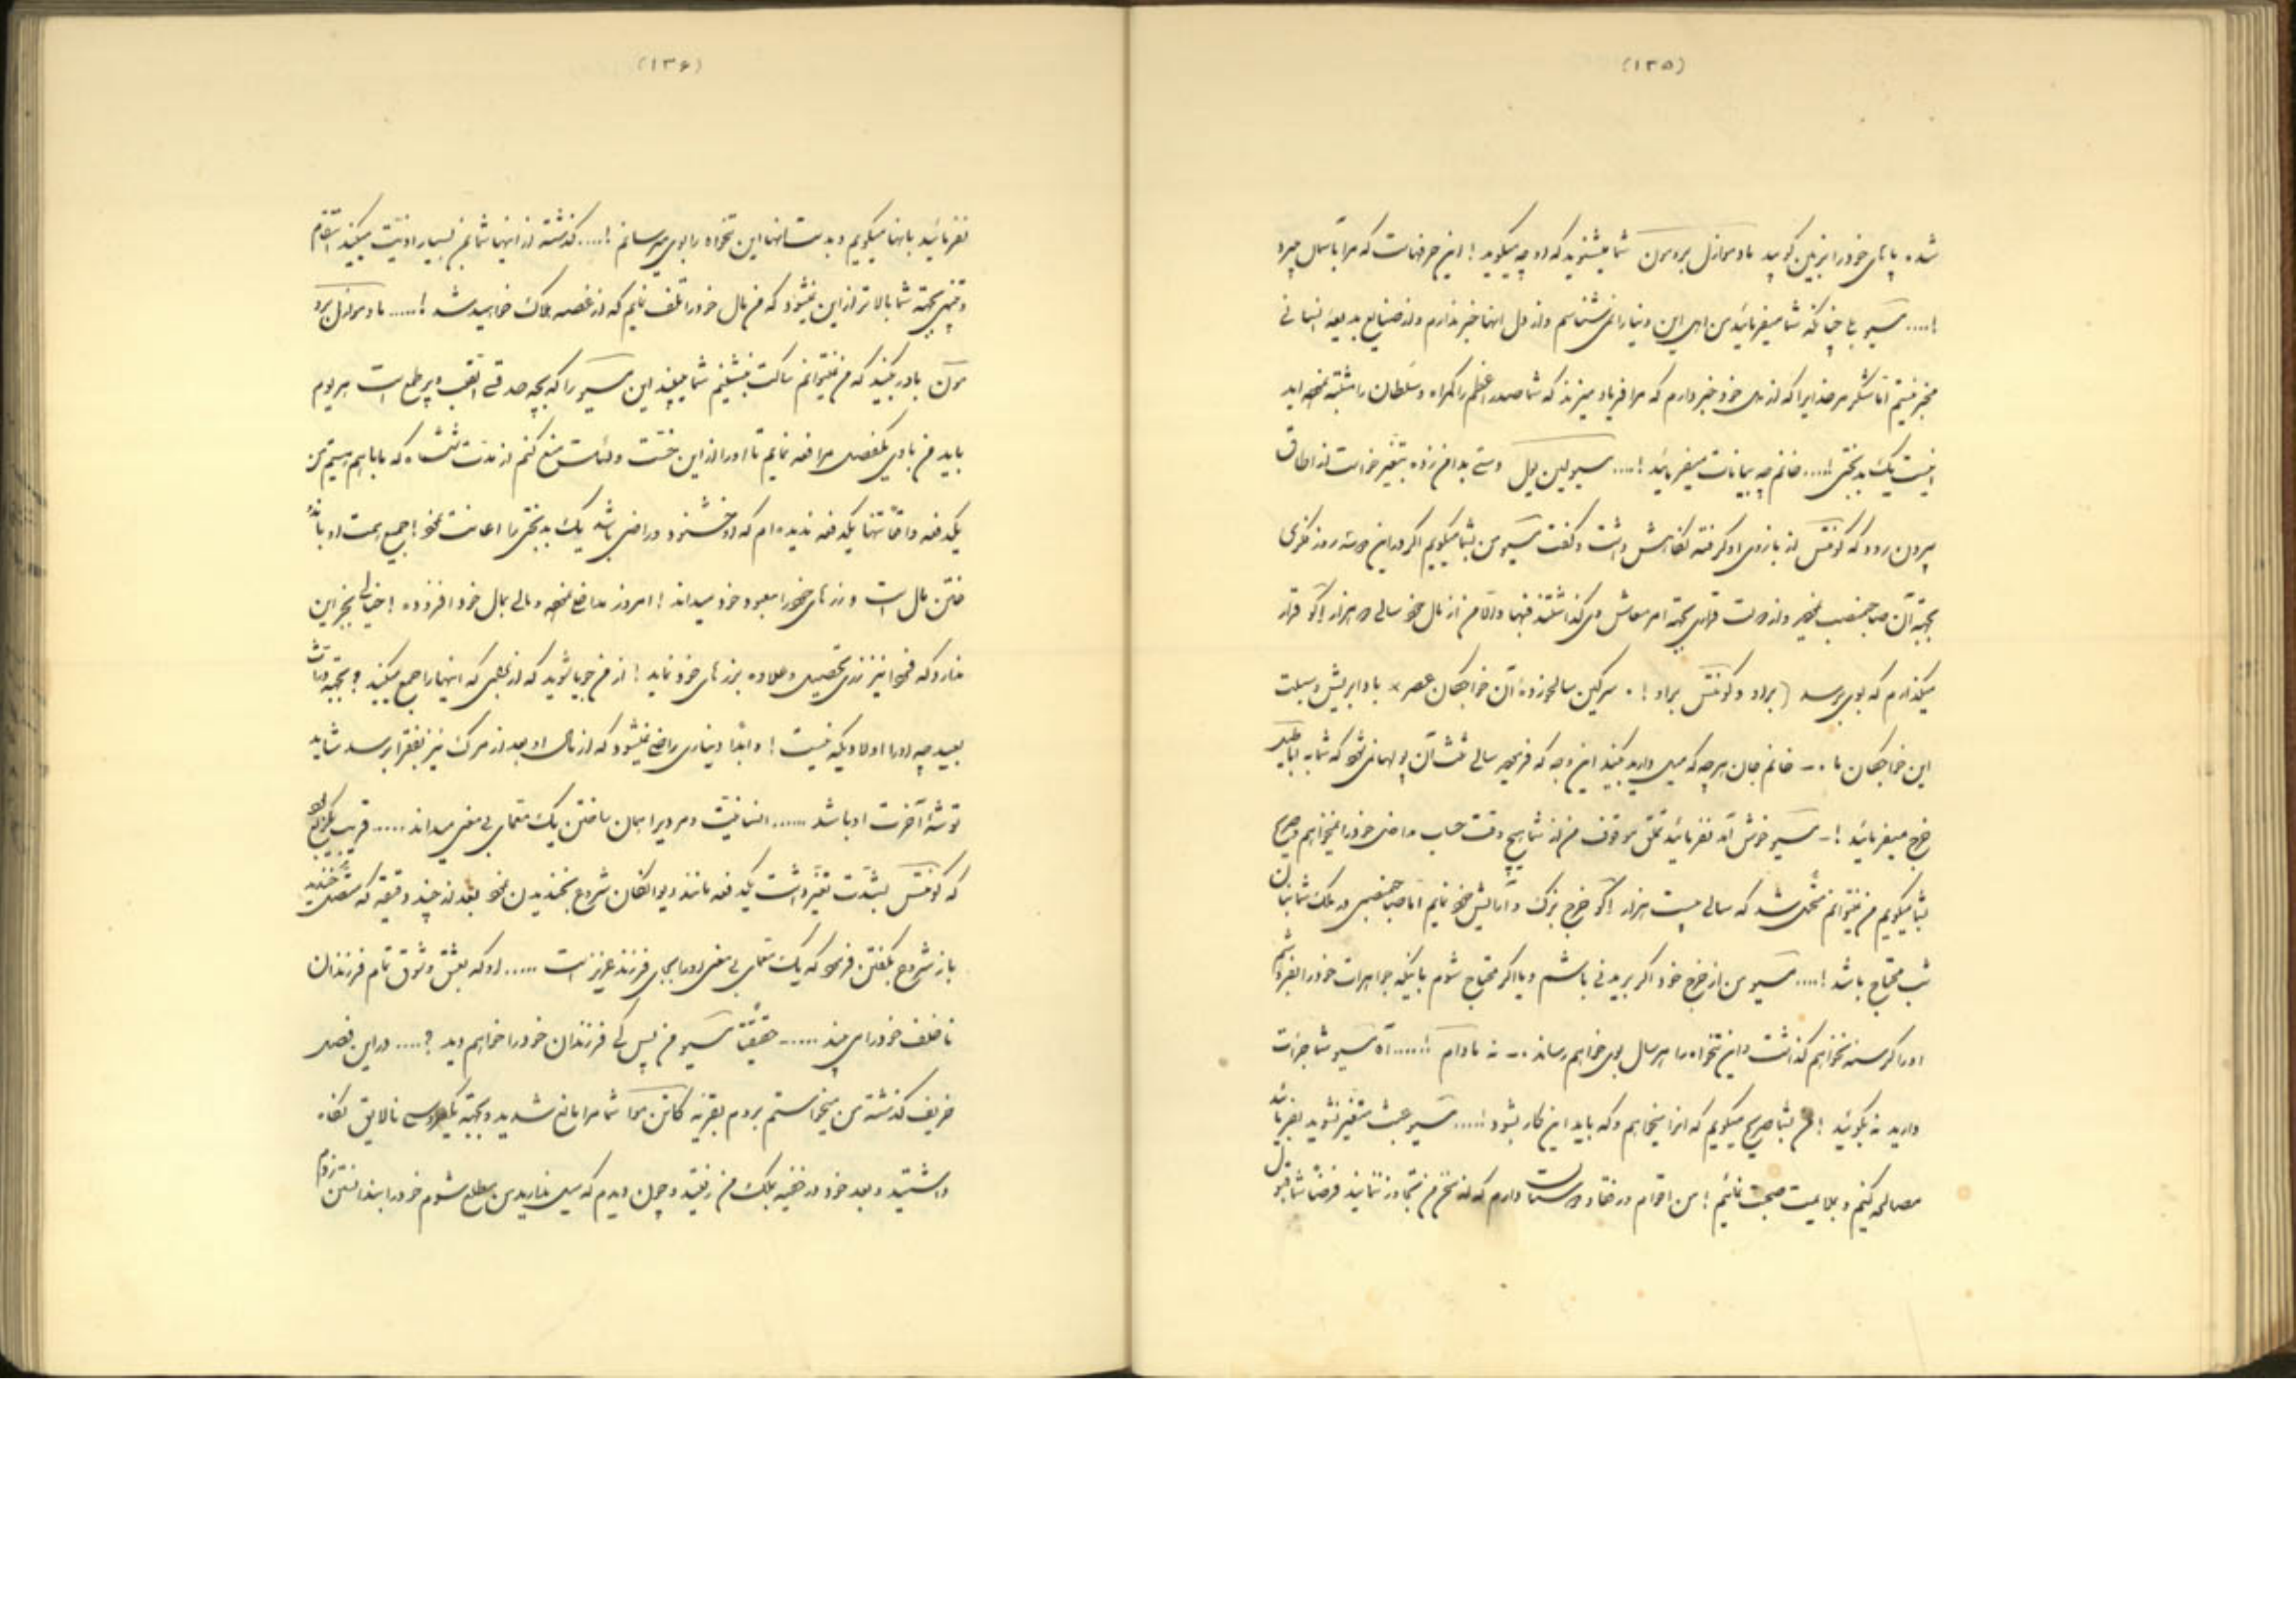 (۱۳۵)
شده پاهای خود را بزمین کوبید مادموازل برومون شما میشنوید که او چه میگوید! این حرفهاست که مرا باشکال میبرد
!.... مسیو بلی چنانکه شما میفرمائید من اهل این دنیا را نمیشناسم و از دل آنها خبر ندارم و از ضایع بدیعه انسانی
مخبر نیستم اما شکر مر خدایرا که از دل خود خبر دارم که مرا فریاد میزند که شما صدر اعظم را گمراه و سلطان را مشتبه نموده اید
نیست یک بدبختی !.... خانم چه بیانات میفرمائید !.... مسیو لین پول دستی بدامن زده بتغیر خواست از اطاق
بیرون رود که کونتس از بازوی او گرفته نگاهش داشت و گفت مسیو من بشما میگویم اگر در این دو سه روز فکری
بجهة آن صاحبمنصب نمودید و از دولت قراری بجهة امر معاش وی گذاشتند فبها والا من از مال خود سالی ده هزار اکو قرار
میگذارم که بوی برسد (براو و کونتس براو !. سرکین سالخورده آن خواجگان عصر × با دابریش و سبلت
این خواجگان ما .- خانم جان هر چه که میل دارید بکنید این وجه که فرمودید سالی ثلث آن پولها نمیشود که شما به اطبا
خرج میفرمائید !- مسیو خوش آمد نفرمائید تملق موقوف من از شما هیچ وقت حساب ماضی خود را نمیخواهم صریح
بشما میگویم من نمیتوانم متحمل شد که سالی بیست هزار اکو خرج بزک و آرایش خود نمایم اما صاحبمنصبی در ملک شما بنان
شب محتاج باشد !.... مسیو من از خرج خود اگر بریدنی باشم و یا اگر محتاج شوم باینکه جواهرات خود را بفروشم
او را گرسنه نخواهم گذاشت و این تنخواه را هر سال بوی خواهم رساند .- نه مادام !...... آه مسیو شما جرأت
دارید نه بگوئید ! من بشما صریح میگویم که اینرا میخواهم و که باید این کار بشود !..... مسیو عبث متغیر نشوید بفرمائید
مصالحه کنیم و بملایمت صحبت نمائیم ! من اقوام و رفقا و دوستان دارم که از سخن من تجاوز ننمایند فرضا شما قبول
(۱۳۶)
نفرمائید بآنها میگویم و بدست آنها این تنخواه را بوی میرسانم !.... گذشته از اینها شما بمن بسیار اذیت میکنید انتقام
و تنبیهی بجهة شما بالاتر از این نمیشود که من مال خود را تلف نمایم که از غصه هلاک خواهید شد !..... مادموازل برو
مون باور بکنید که من نمیتوانم ساکت بنشینم شما میبینید این مسیو را که بچه حد قسی القلب و پر طمع است هر یوم
باید من با وی یکفصل مرافعه نمایم تا او را از این خست و لئامت منع کنم از مدت ششماه که با باهم هستیم من
یکدفعه واقعاً تنها یکدفعه ندیده ام که او خشنود و راضی باشد یک بدبختی را اعانت نمود ! جمیع همت او باندو
ختن مال است و زرهای خود را معبود خود میداند ! امروز مدافع نموده و مالی بمال خود افزوده ! خیالی بجز این
ندارد که فردا نیز زری تحصیل و علاوه بر زرهای خود نماید ! از من جویا شوید که از بهر کی که اینها را جمع میکند ؟ بجهة وراث
بعید چه او را اولادی که نیست ! و ابداً دیناری راضی نمیشود که از مال او بعد از مرگ نیز بفقرا برسد شاید
توشۀ آخرت او باشد ...... انسانیت و مرد و ایمان ساختن یک معمای بی معنی میداند ..... قریب یکربع بود
که کونتس بشدت تغیر داشت یکدفعه مانند دیوانگان شروع بخندیدن نمود بعد از چند دقیقه که متصل خندید
باز شروع بگفتن فرمود که یک معمای بی معنی او را بجای فرزند عزیز است ..... او که بعشق و شوق تمام فرزندان
ناخلف خود را می بیند ..... حقیقتاً مسیو من پس کی فرزندان خود را خواهم دید ؟.... در این فصل
خریف گذشته من میخواستم بروم بقریه کانن موآ شما مرا مانع شدید و بجهة یکعروسی نالایق نگاه
داشتید و بعد خود در خفیه بملک من رفتید و چون دیدم که میل ندارید من مطلع شوم خود را بندانستن زدم